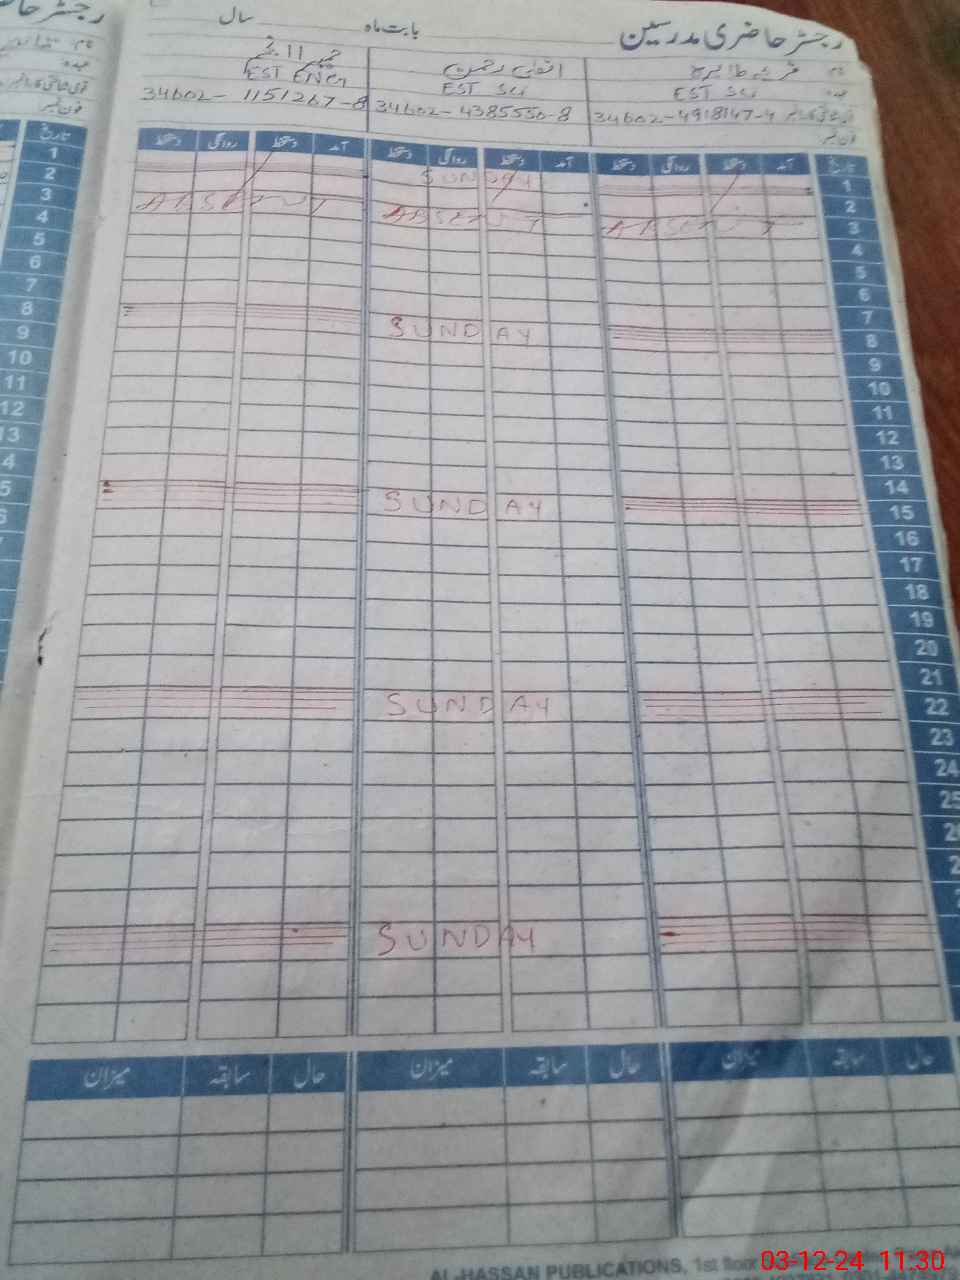 رجسٹر حاضری مدرسین بابت ماه سال
نام
EST Sci EST Sci EST ENGL
34602-4918147-4 34602-4385550-8 34602-1151267-8
فون نمبر
تاریخ آمد دستخط روانگی دستخط آمد دستخط روانگی دستخط آمد دستخط روانگی دستخط تاریخ
1 SUNDAY 1
2 2
3 ABSENT ABSENT ABSENT 3
4 4
5 5
6 6
7 7
8 SUNDAY 8
9 9
10 10
11 11
12 12
13 13
14
15 SUNDAY
16
17
18
19
20
21
22 SUNDAY
23
24
25
SUNDAY
حال سابقہ میزان حال سابقہ میزان حال سابقہ میزان
AL-HASSAN PUBLICATIONS, 1st floor
03-12-24 11:30